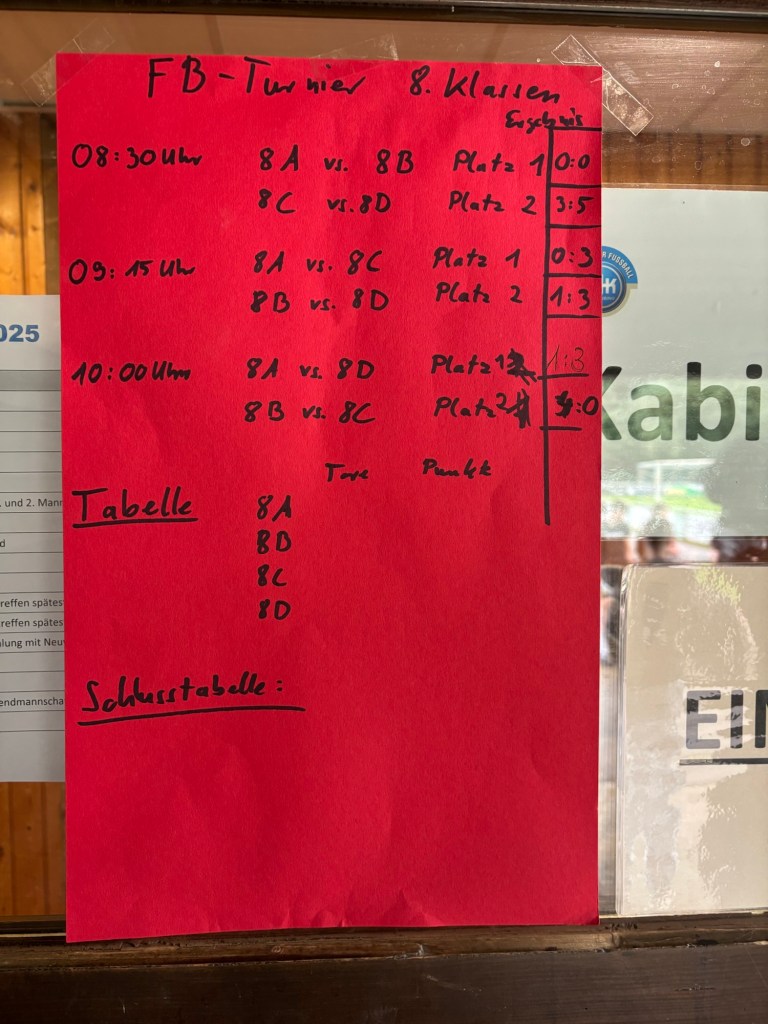 FB-Turnier 8. Klassen
Ergebnis
08:30 Uhr 8A vs. 8B Platz 1 0:0
8C vs. 8D Platz 2 3:5
09:15 Uhr 8A vs. 8C Platz 1 0:3
8B vs. 8D Platz 2 1:3
10:00 Uhr 8A vs. 8D Platz 1 1:3
8B vs. 8C Platz 2 :0
Tore Punkte
Tabelle 8A
8B
8C
8D
Schlusstabelle:
025
. und 2. Mann
d
reffen spätes
reffen spätes
lung mit Neu
endmannscha
R FUSSBALL
Kabi
EIN